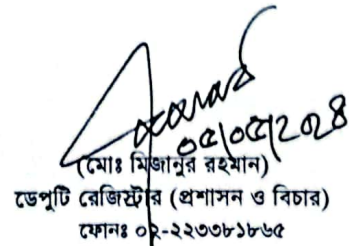 ০৫/০৫/২০২৪
(মোঃ মিজানুর রহমান)
ডেপুটি রেজিস্ট্রার (প্রশাসন ও বিচার)
ফোনঃ ০২-২২৩৩৮১৮৬৫